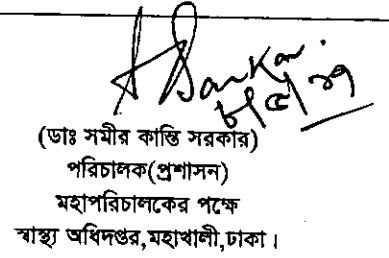 (ডাঃ সমীর কান্তি সরকার)
পরিচালক(প্রশাসন)
মহাপরিচালকের পক্ষে
স্বাস্থ্য অধিদপ্তর,মহাখালী,ঢাকা।